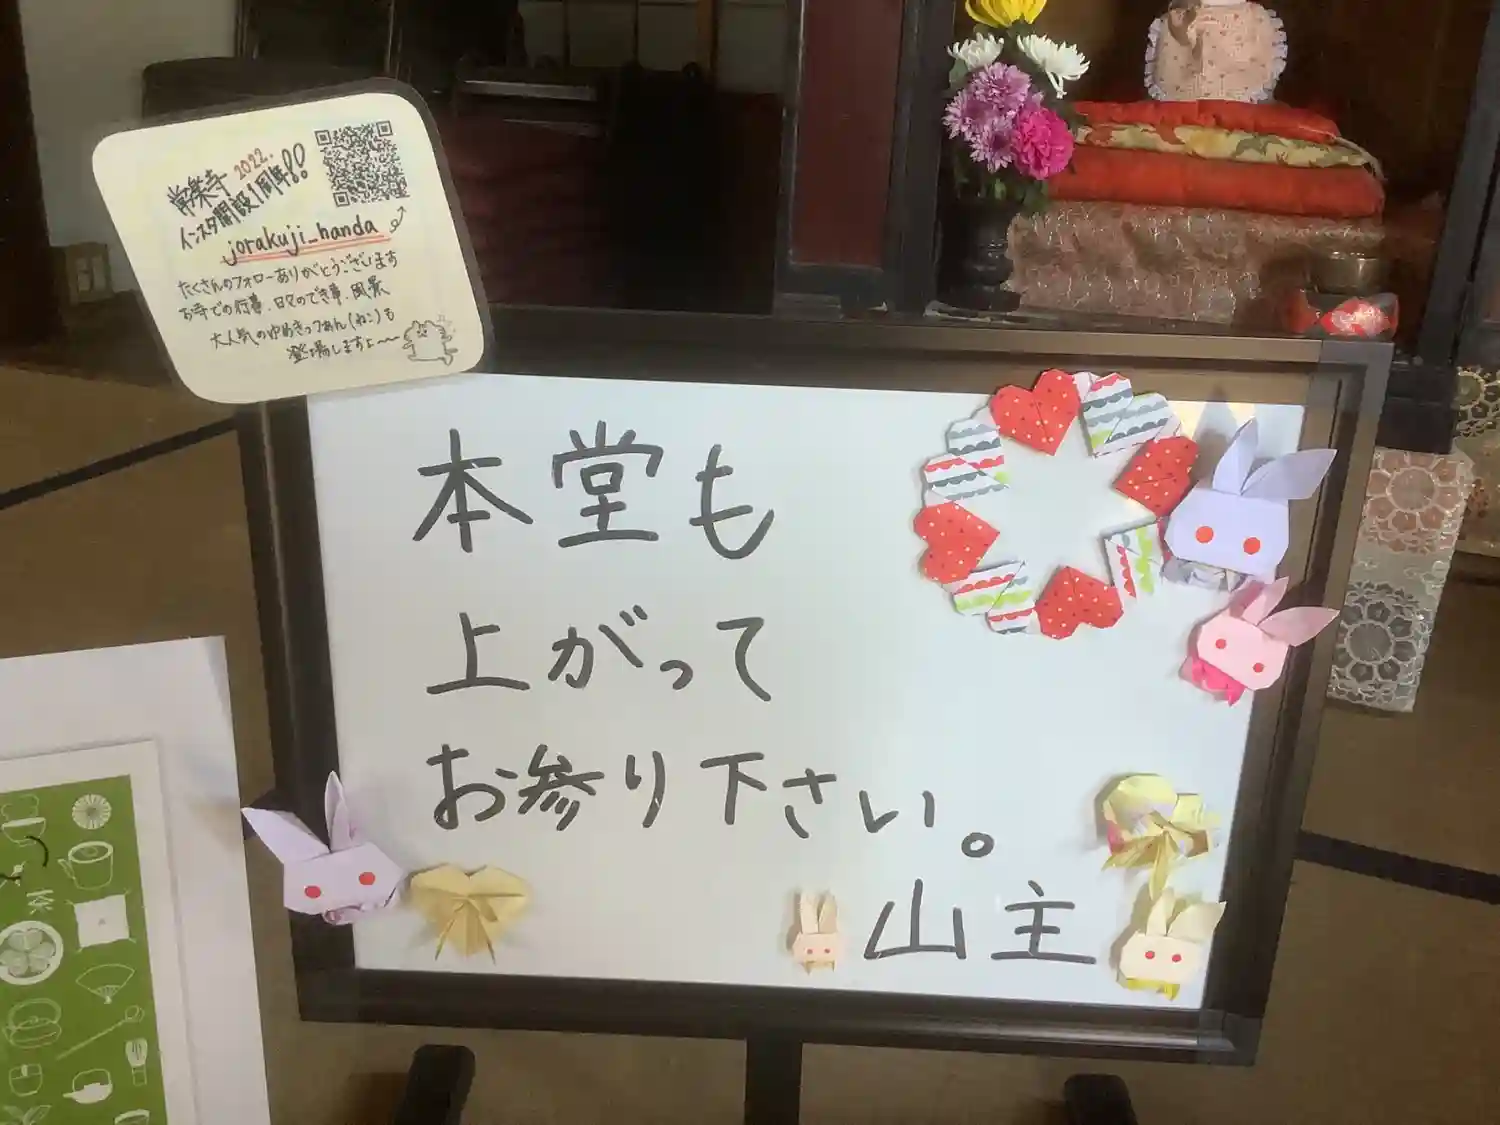 常楽寺 2022.
インスタ開設1周年!!
jorakuji_handa
たくさんのフォローありがとうございます
お寺での行事、日々のでき事、風景
大人気のゆめきっつぁん(ねこ)も
登場しますよ〜〜
本堂も
上がって
お参り下さい。
山主